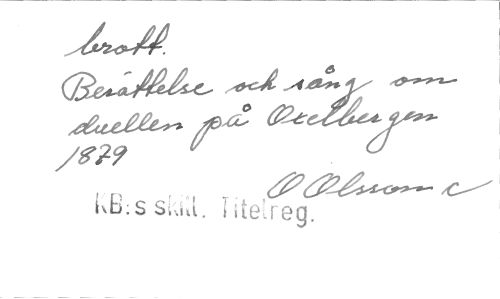 brott.
Berättelse och sång om
duellen på Oxelbergen
1879
O Olsson c
KB:s skill. Titelreg.